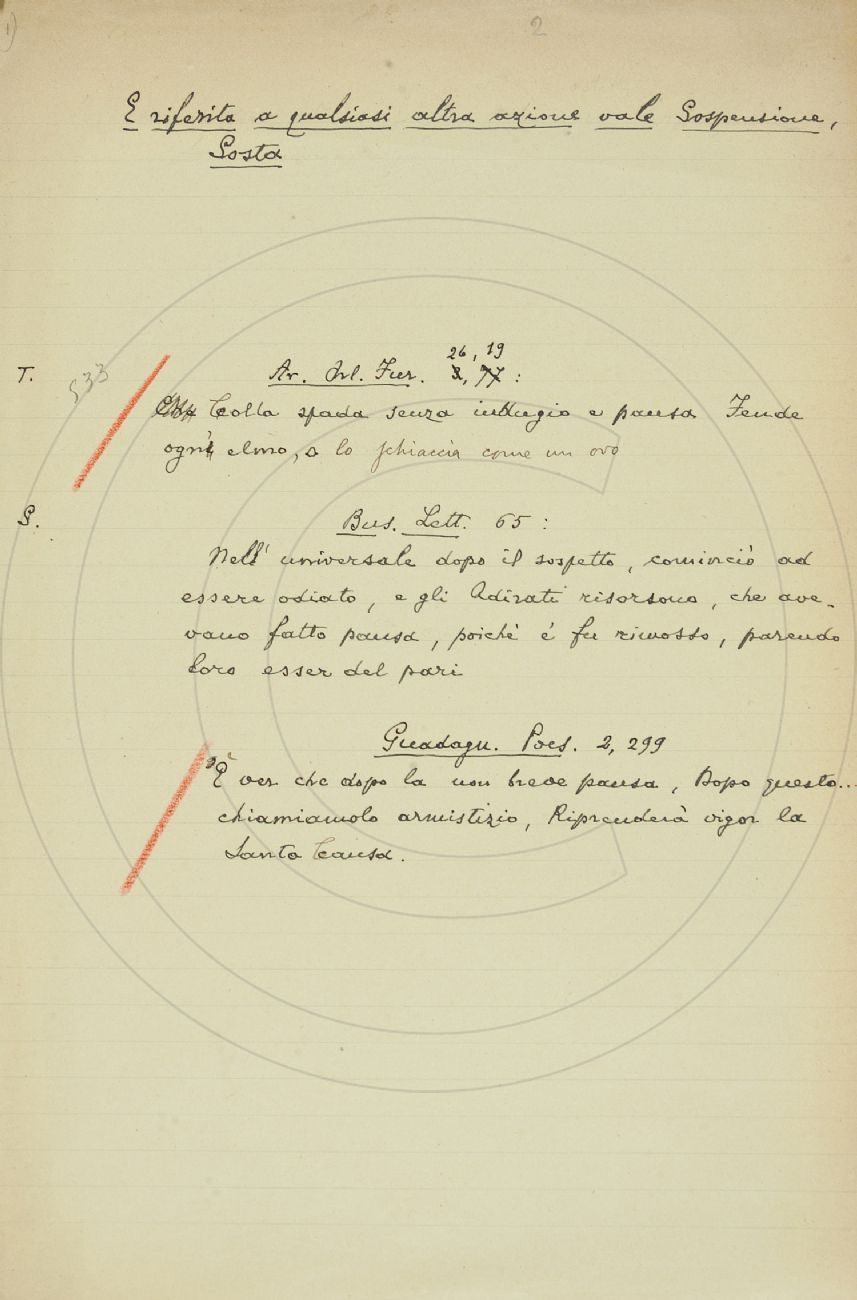 1)
2
E riferita a qualsiasi altra azione vale Sospensione,
Sosta
26, 19
T. 533 Ar. Orl. Fur. :
Colla spada senza indugio e pausa Fende
ogni elmo, o lo schiaccia come un ovo
S. Bus. Lett. 65 :
Nell' universale dopo il sospetto, cominciò ad
essere odiato, e gli Adirati risorsono, che ave-
vano fatto pausa, poichè é fu rimosso, parendo
loro esser del pari
Guadagn. Poes. 2, 299
È ver che dopo la non breve pausa, Dopo questo...
chiamiamolo armistizio, Riprenderà vigor la
Santa Causa.